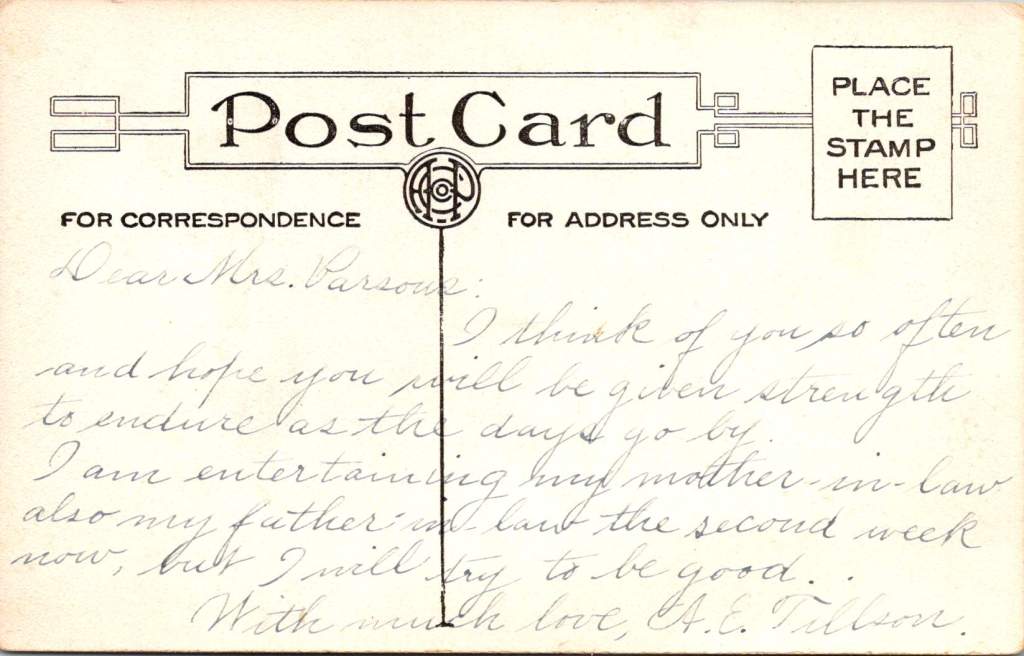 Post Card
PLACE
THE
STAMP
HERE
FOR CORRESPONDENCE
FOR ADDRESS ONLY
Dear Mrs. Parsons:
I think of you so often
and hope you will be given strength
to endure as the days go by.
I am entertaining my mother-in-law
also my father-in-law the second week
now, but I will try to be good..
With much love, A.E. Tillson.